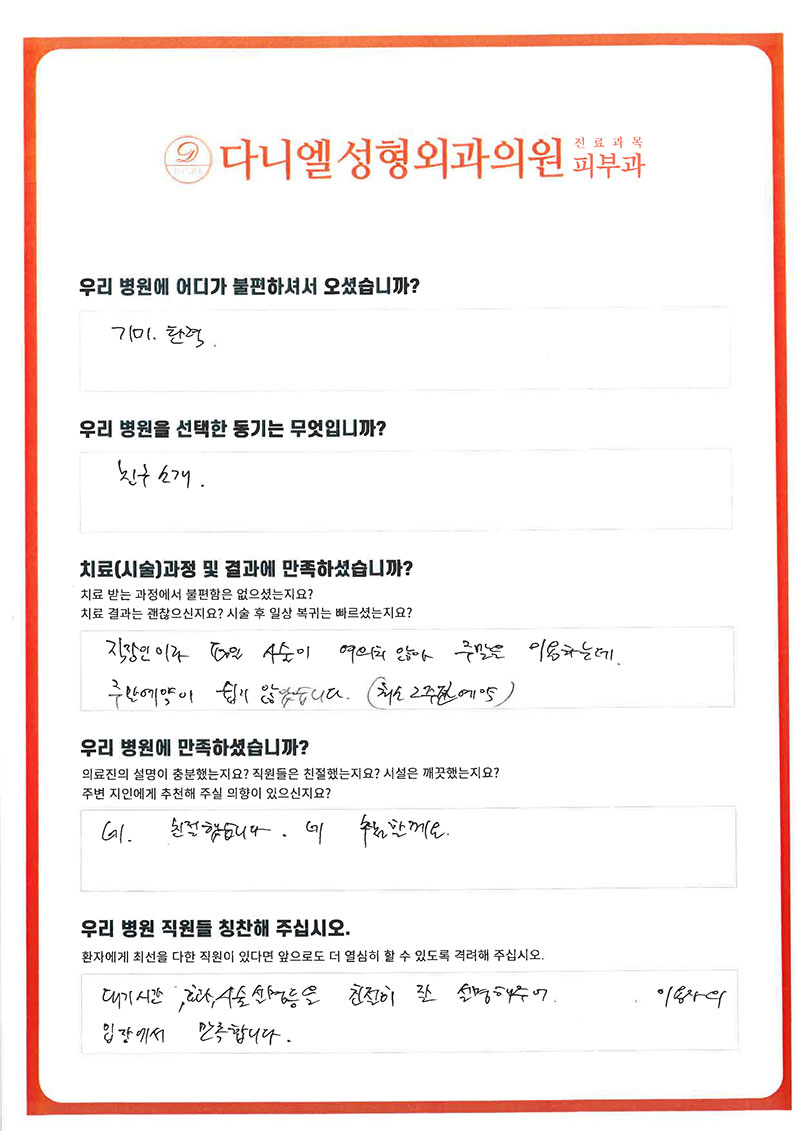 다니엘성형외과의원 진료과목 피부과
우리 병원에 어디가 불편하셔서 오셨습니까?
기미. 탄력.
우리 병원을 선택한 동기는 무엇입니까?
친구 소개.
치료(시술)과정 및 결과에 만족하셨습니까?
치료 받는 과정에서 불편함은 없으셨는지요?
치료 결과는 괜찮으신지요? 시술 후 일상 복귀는 빠르셨는지요?
직장인이라 평일 시술이 여의치 않아 주말을 이용하는데.
주말예약이 쉽지 않았습니다. (최소 2주전 예약)
우리 병원에 만족하셨습니까?
의료진의 설명이 충분했는지요? 직원들은 친절했는지요? 시설은 깨끗했는지요?
주변 지인에게 추천해 주실 의향이 있으신지요?
네. 친절했습니다. 네 추천할께요.
우리 병원 직원들 칭찬해 주십시오.
환자에게 최선을 다한 직원이 있다면 앞으로도 더 열심히 할 수 있도록 격려해 주십시오.
대기시간, 효과, 시술설명등을 친절히 잘 설명해주어. 이용자의
입장에서 만족합니다.